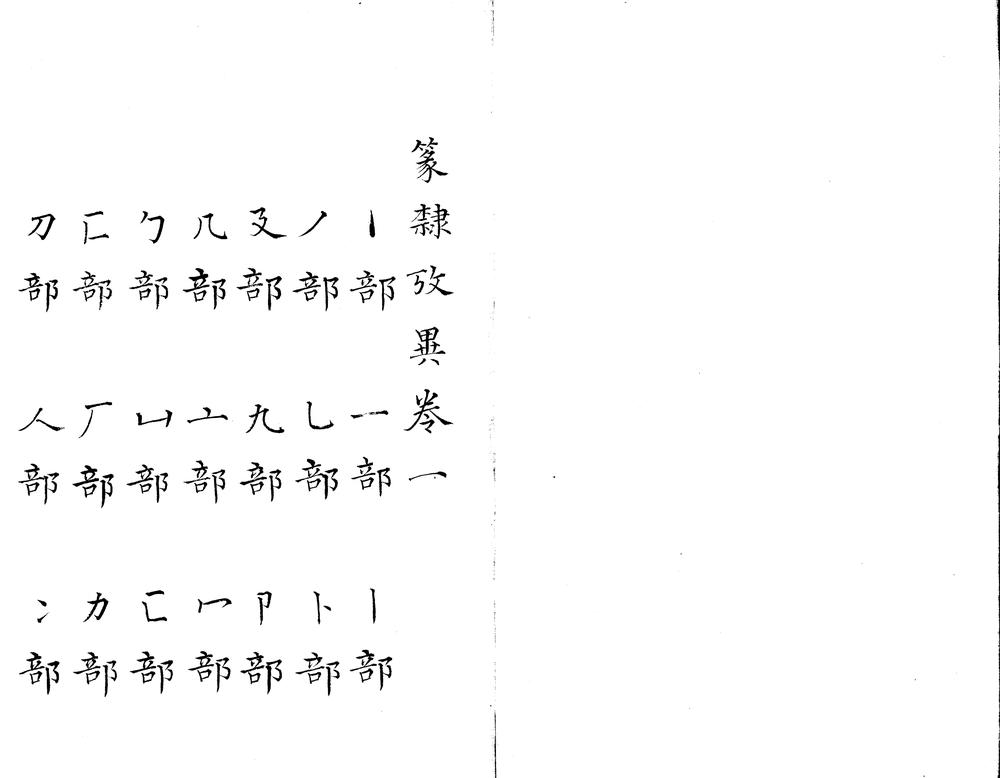 篆隸攷異卷一
丶部 一部 丨部
丿部 乚部 卜部
廴部 九部 卩部
几部 亠部 冖部
勹部 凵部 匸部
匚部 厂部 力部
刀部 人部 冫部